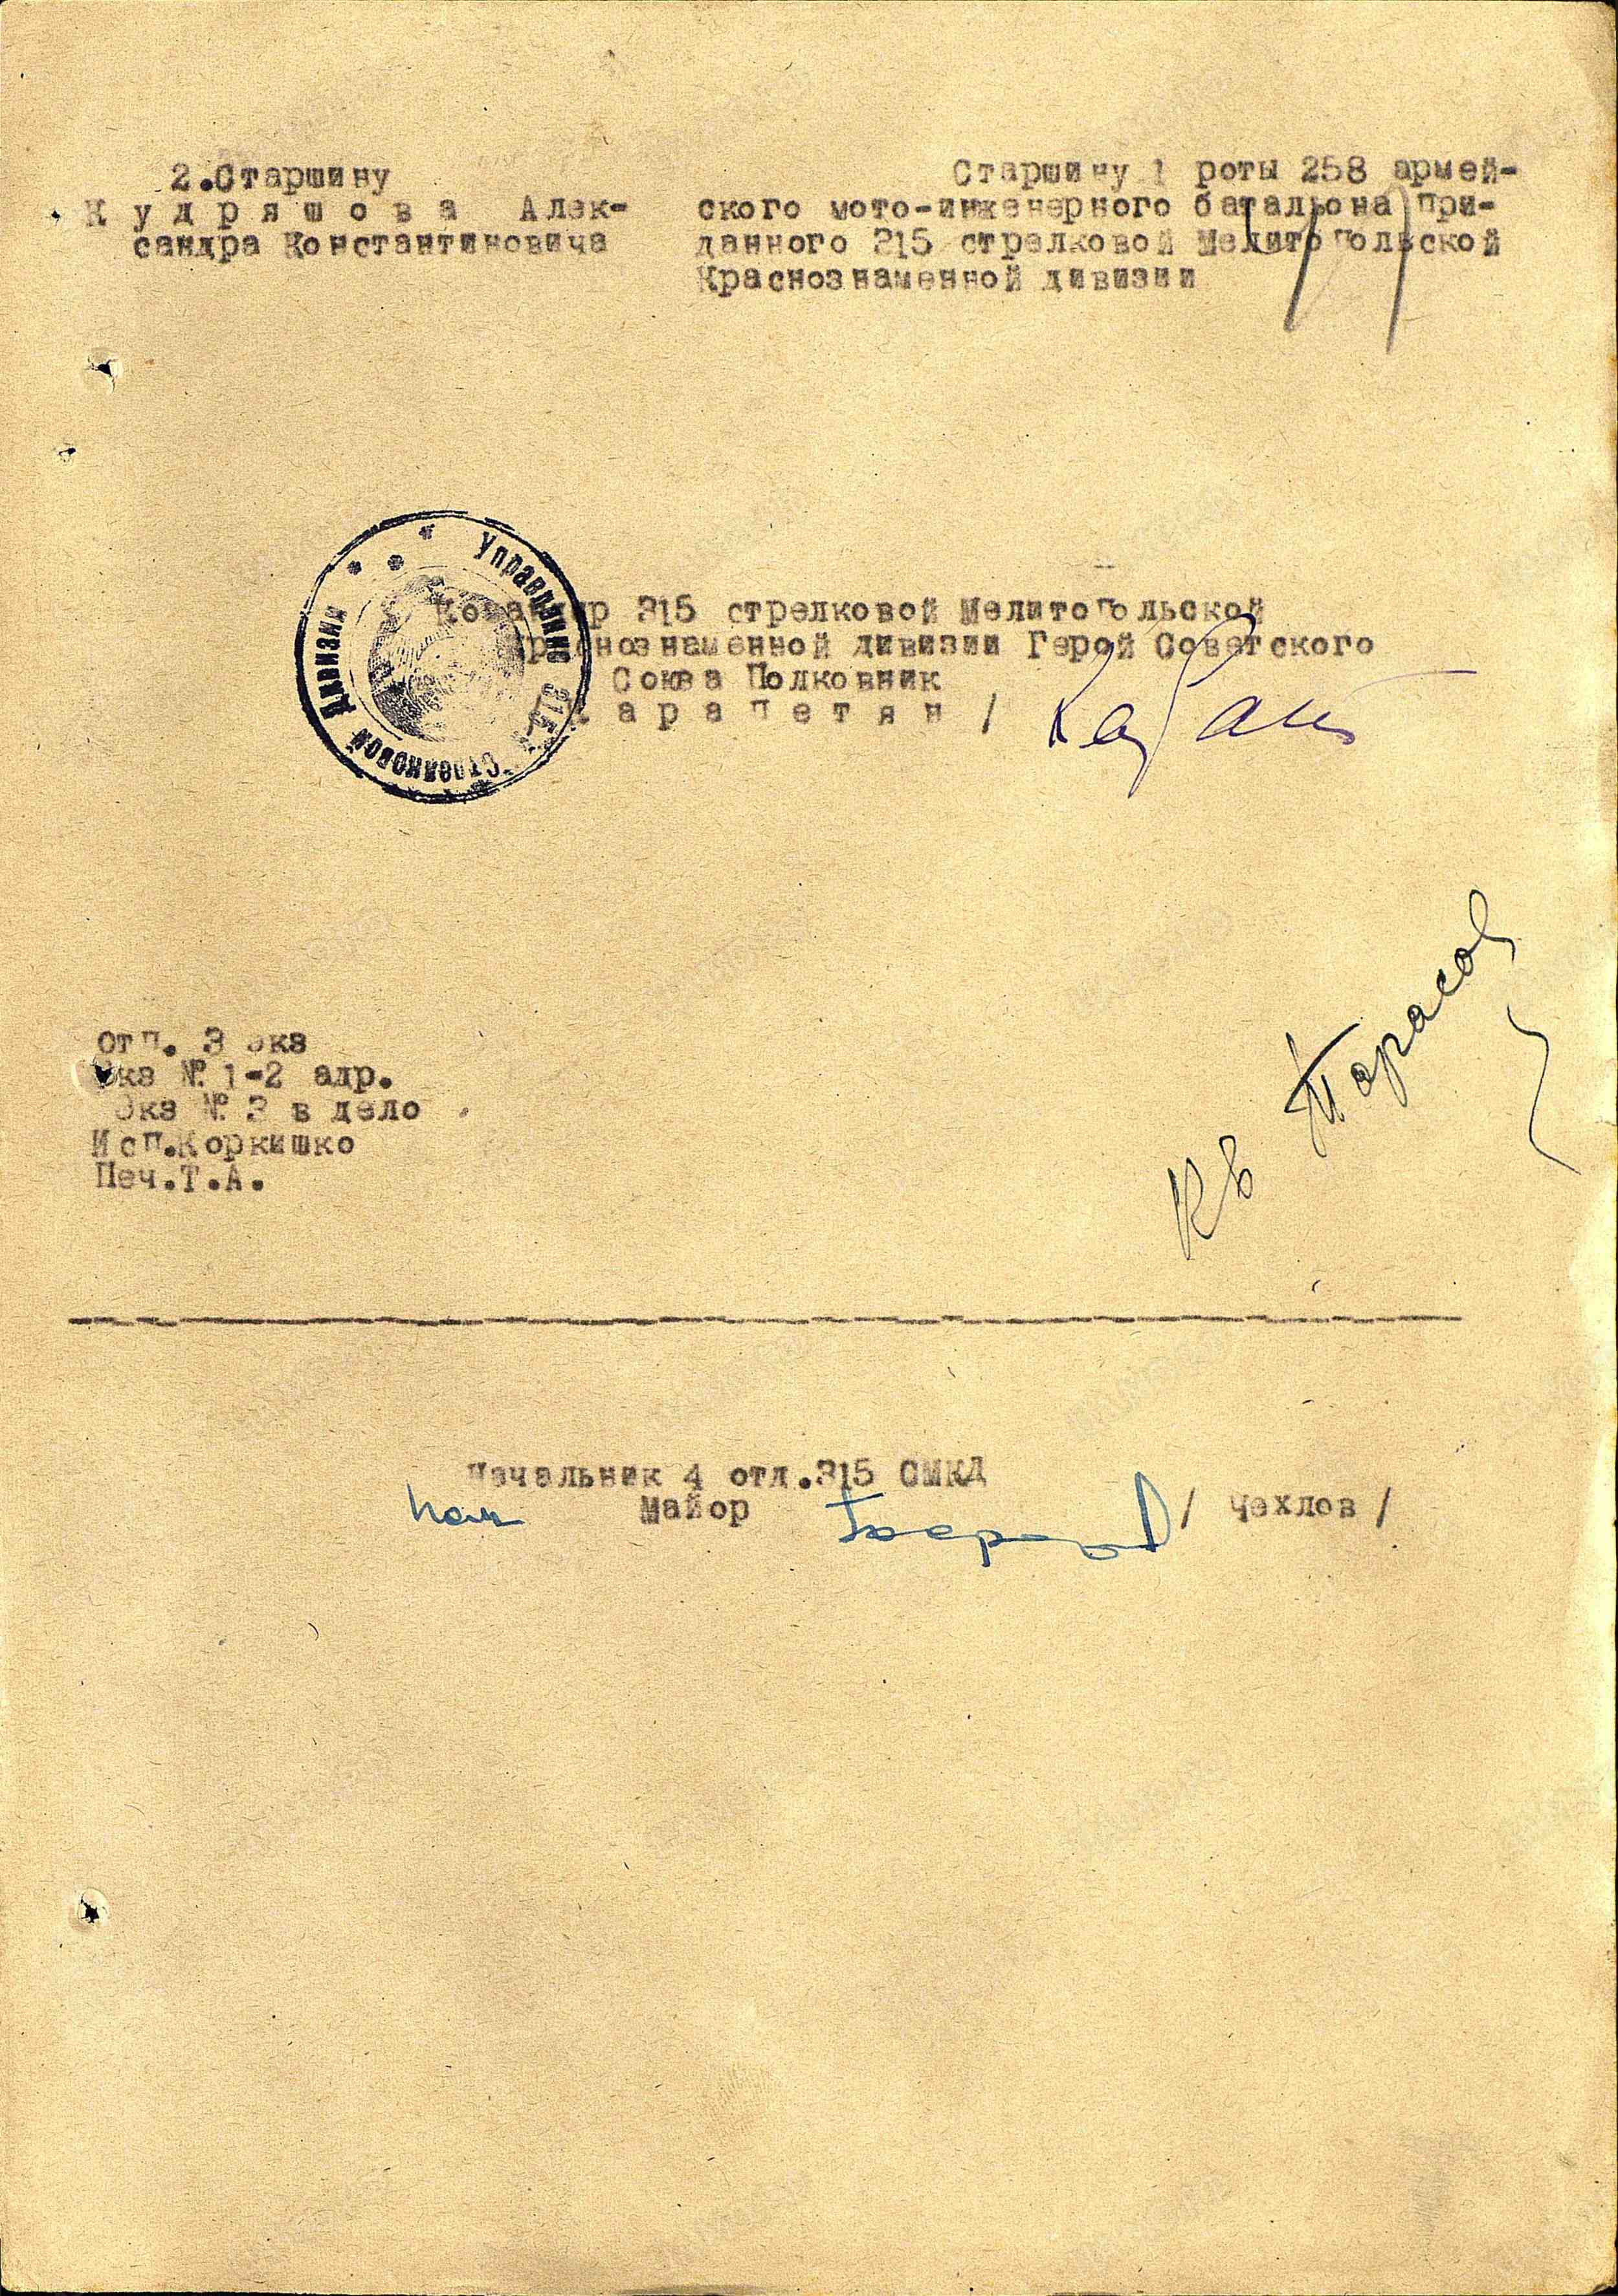 2.Старшину
Кудряшова Алек-
сандра Константиновича
Старшину 1 роты 258 армей-
ского мото-инженерного батальона при-
данного 315 стрелковой Мелитопольской
Краснознаменной дивизии
Управление 315 Стрелковой Дивизии
Командир 315 стрелковой Мелитопольской
Краснознаменной дивизии Герой Советского
Союза Полковник
/Карапетян/
отп. 3 экз
Экз № 1-2 адр.
Экз № 3 в дело
Исп.Коркишко
Печ.Т.А.
Кв Тарасов
Начальник 4 отд.315 СМКД
Майор
/ Чехлов /